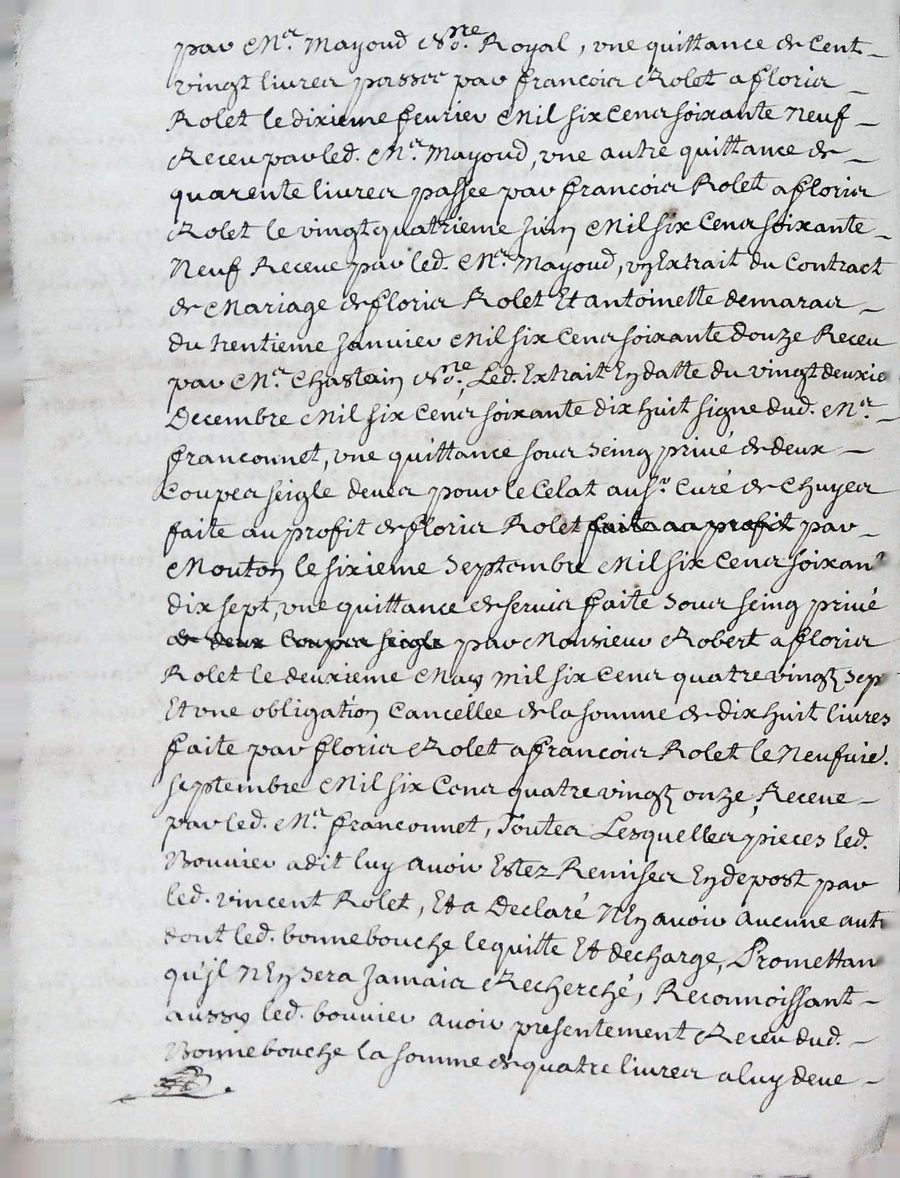 par Mr. Mayoud No.re Royal, vne quittance de Cent
vingt livres passee par francois Rolet a floris
Rolet le dixieme fevrier Mil six Cens soixante Neuf
Receu par led. Mr. Mayoud, vne autre quittance de
quarente livres passée par francois Rolet a floris
Rolet le vingt quatrieme Juin Mil six Cens soixante
Neuf Receue par led. Mr. Mayoud, vn Extrait du Contract
de Mariage de floris Rolet Et antoinette demaras
du trentieme Janvier Mil six Cens soixante douze Receu
par Mr. Chastain No.re, Led. Extrait En datte du vingt deuxie
Decembre Mil six Cens soixante dix huit signe dud. Mr.
franconnet, vne quittance sous seing privé de deux
Coupes seigle deues pour le Celat au sr. Curé de Chuyes
faite au profit de floris Rolet faite au profit par
Mouton le sixieme Septembre Mil six Cens soixante
dix sept, vne quittance de servis faite sous seing privé
de deux Coupes seigle par Monsieur Robert a floris
Rolet le deuxieme May mil six Cens quatre vingt sep
Et vne obligation Cancellee de la somme de dix huit livres
faite par floris Rolet a francois Rolet le Neufvie.
septembre Mil six Cens quatre vingt onze, Receue
par led. Mr. franconnet, Toutes Lesquelles pieces led.
Bouvier a dit luy avoir Estez Remises En depost par
led. vincent Rolet, Et a Declaré N'En avoir aucune aut
dont led. bonnebouche le quitte Et decharge, Promettan
qu'jl N'En sera Jamais Recherché, Reconnoissant
aussy led. bouvier avoir presentement Receu dud.
Bonnebouche la somme de quatre livres a luy deue